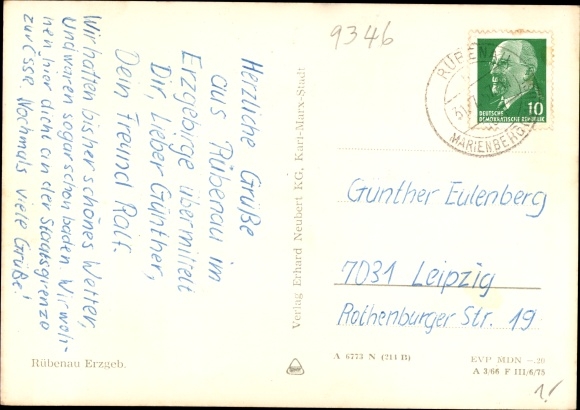 9346
Herzliche Grüße
aus Rübenau im
Erzgebirge übermittelt
Dir, Lieber Günther,
Dein Freund Ralf.
Wir hatten bisher schönes Wetter,
und waren sogar schon baden. Wir woh-
nen hier dicht an der Staatsgrenze
zur ČSSR. Nochmals viele Grüße!
Rübenau Erzgeb.
Verlag Erhard Neubert KG, Karl-Marx-Stadt
MARIENBERG
DEUTSCHE
DEMOKRATISCHE REPUBLIK
10
Günther Eulenberg
7031 Leipzig
Rothenburger Str. 19
A 6773 N (214 B)
EVP MDN -.20
A 3/66 F III/6/75
1/